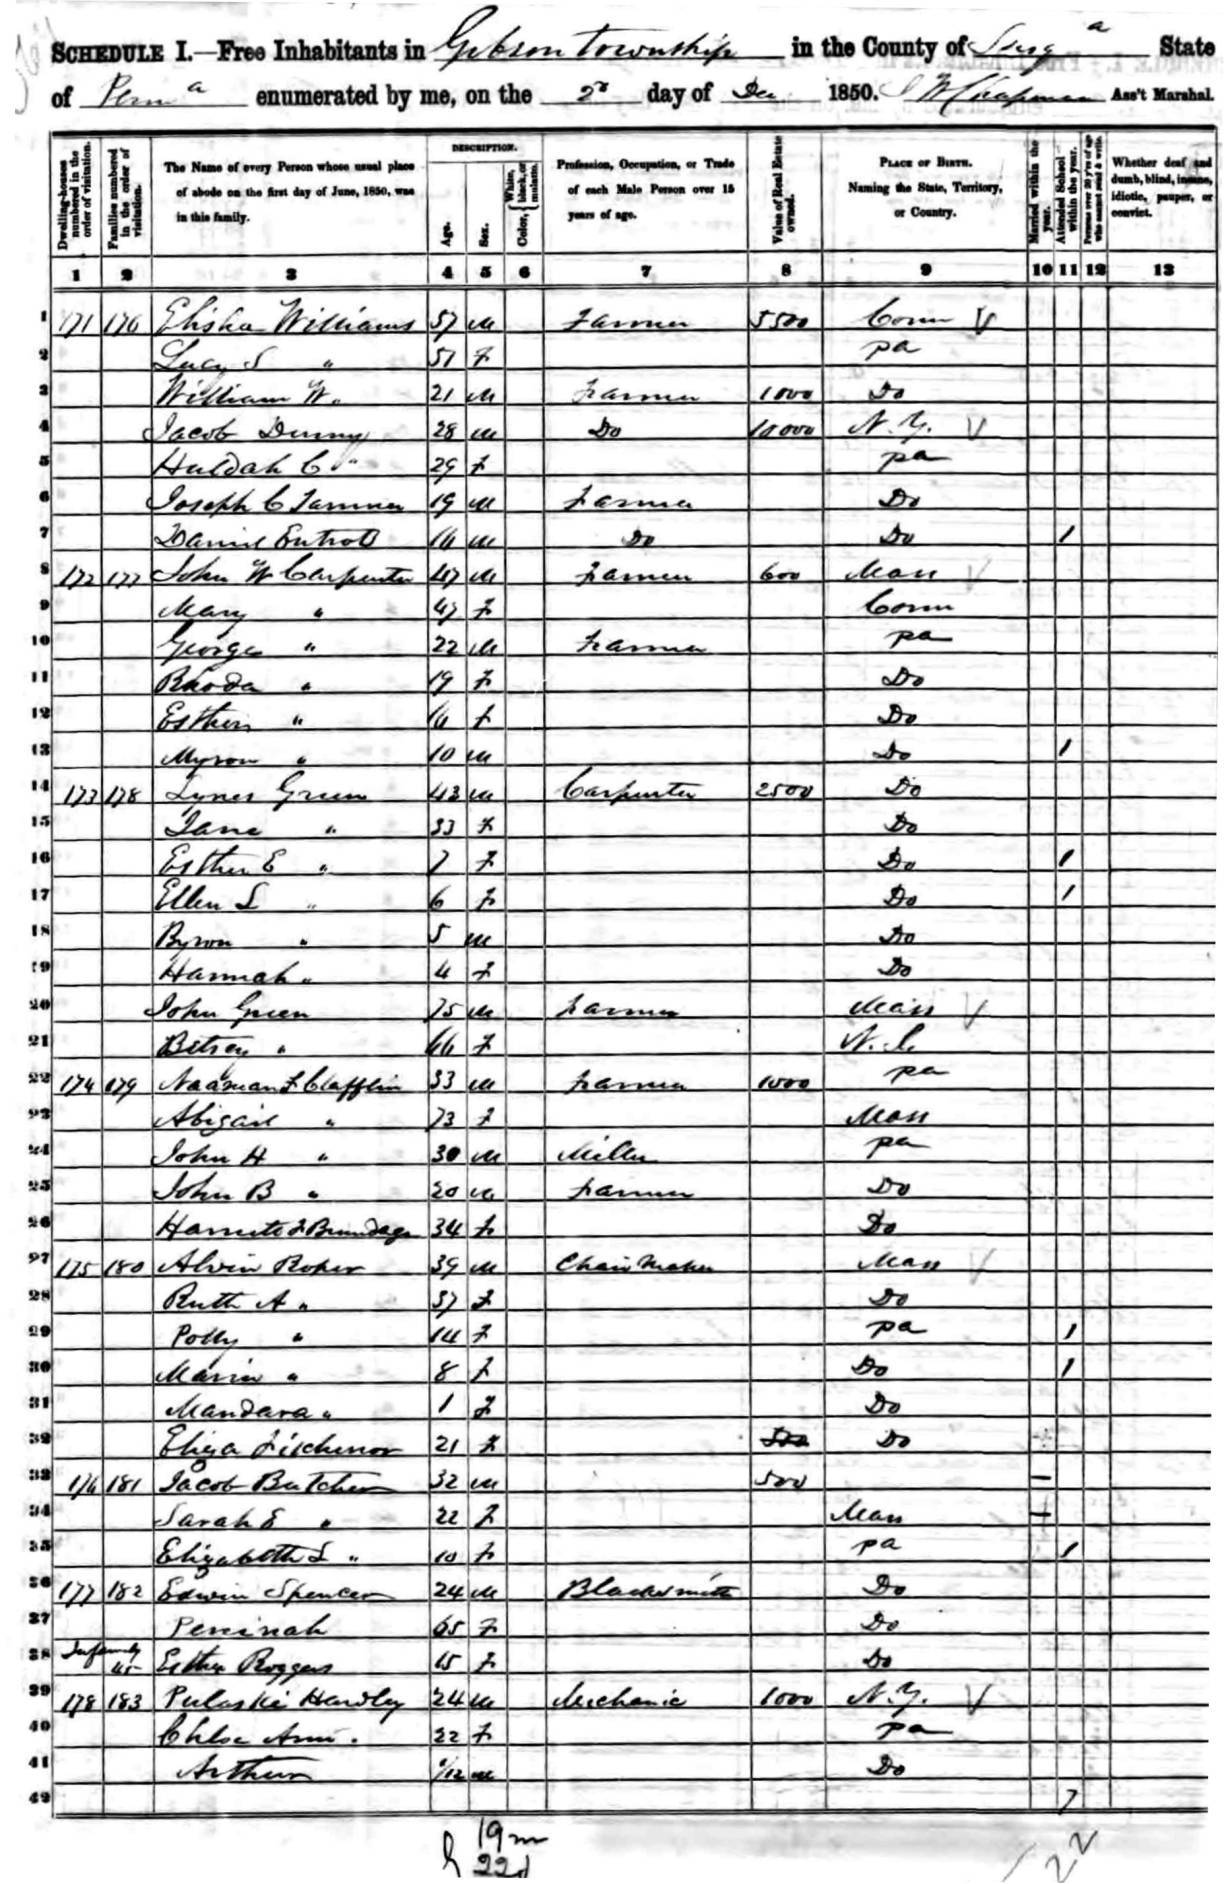 SCHEDULE I.—Free Inhabitants in Gibson Township in the County of Susq a State
of Penn a enumerated by me, on the 2d day of Dec 1850. J W Chapman Ass't Marshal.
Dwelling-houses numbered in the order of visitation. Families numbered in the order of visitation. The Name of every Person whose usual place of abode on the first day of June, 1850, was in this family. DESCRIPTION. Age. Sex. Color, White, black, or mulatto. Profession, Occupation, or Trade of each Male Person over 15 years of age. Value of Real Estate owned. PLACE OF BIRTH. Naming the State, Territory, or Country. Married within the year. Attended School within the year. Persons over 20 years of age who cannot read & write. Whether deaf and dumb, blind, insane, idiotic, pauper, or convict.
1 2 3 4 5 6 7 8 9 10 11 12 13
1 171 176 Elisha Williams 57 M Farmer 5500 Conn V
2 Lucy S " 51 F pa
3 William W. 21 M Farmer 1000 Do
4 Jacob Denny 28 M Do 10000 N.Y. V
5 Huldah C " 29 F pa
6 Joseph C 19 M Farmer Do
7 Daniel 16 M Do Do 1
8 172 177 John W Carpenter 47 M Farmer 600 Mass V
9 Mary " 47 F Conn
10 George " 22 M Farmer pa
11 Rhoda " 19 F Do
12 Esther " 16 F Do
13 Myron " 10 M Do 1
14 173 178 Green 43 M Carpenter 2500 Do
15 Jane " 33 F Do
16 Esther E " 7 F Do 1
17 Ellen L " 6 F Do 1
18 Byron " 5 M Do
19 Hannah " 4 F Do
20 John Green 75 M Farmer Mass V
21 Betsey " 66 F
22 174 179 Naaman F Clafflin 33 M Farmer 1000 pa
23 Abigail " 73 F Mass
24 John H " 30 M Miller pa
25 John B " 20 M Farmer Do
26 Brundage 34 F Do
27 175 180 Alvin Roper 39 M Chair Maker Mass V
28 Ruth A " 37 F Do
29 Polly " 14 F pa 1
30 Maria " 8 F Do 1
31 Mandara " 1 F Do
32 Eliza 21 F 500 Do
33 176 181 Jacob Butcher 32 M 500 –
34 Sarah E " 22 F Mass –
35 Elizabeth L " 10 F pa 1
36 177 182 Edwin Spencer 24 M Blacksmith Do
37 Peninah F Do
38 In family Esther Roggers 15 F Do
39 178 183 Pulaski Handley 24 M Mechanic 1000 N.Y. V
40 Chloe Ann " 22 F pa
41 Arthur M Do
42 7
19 m
22 f
22